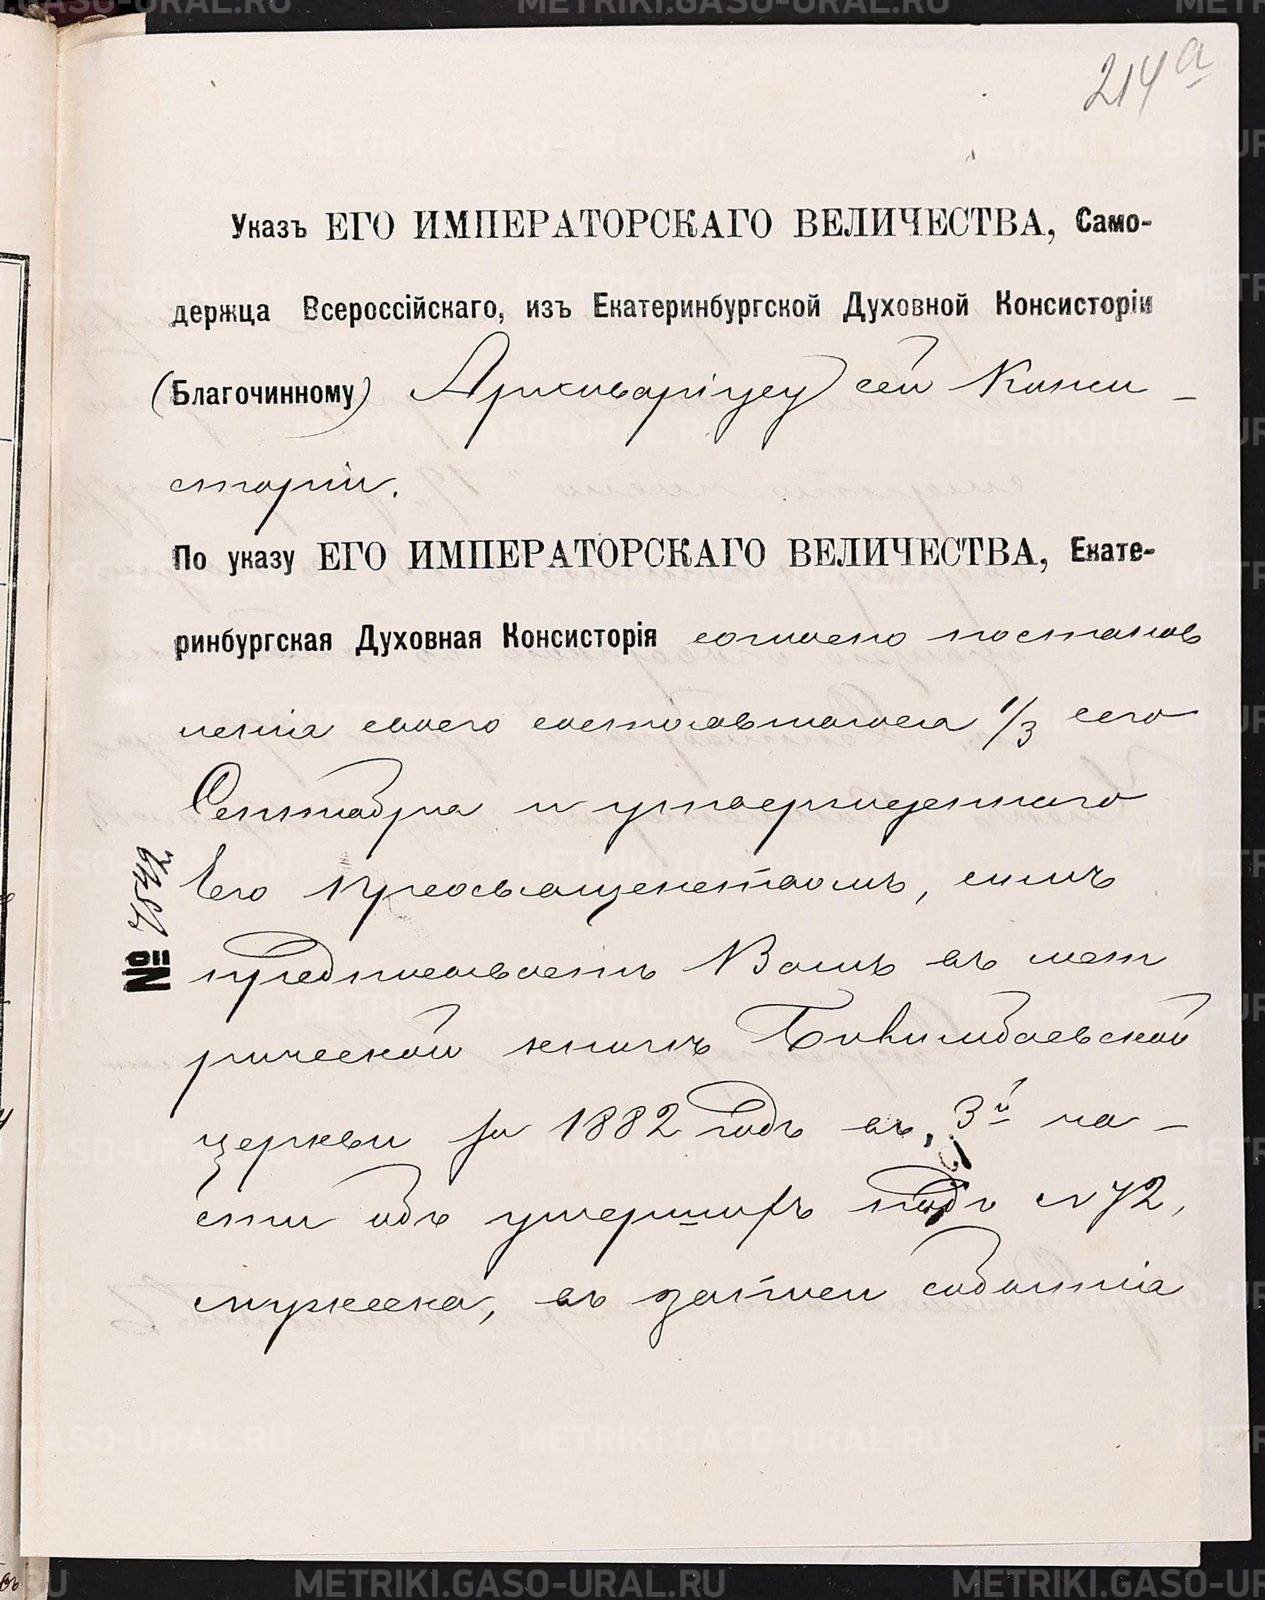 214а
Указъ ЕГО ИМПЕРАТОРСКАГО ВЕЛИЧЕСТВА, Само-
держца Всероссійскаго, изъ Екатеринбургской Духовной Консисторіи
(Благочинному) Архиваріусу сей Конси-
сторіи.
По указу ЕГО ИМПЕРАТОРСКАГО ВЕЛИЧЕСТВА, Екате-
ринбургская Духовная Консисторія согласно постанов
ленія своего состоявшагося 1/3 сего
Сентября и утвержденнаго
№ 7542
Его Преосвященствомъ, симъ
предписываетъ Вамъ въ мет
рической книгѣ Бикимбаевской
церкви за 1882 годъ въ 3й ча-
сти объ умершихъ подъ №72,
мужеска, въ записи событія
METRIKI.GASO-URAL.RU